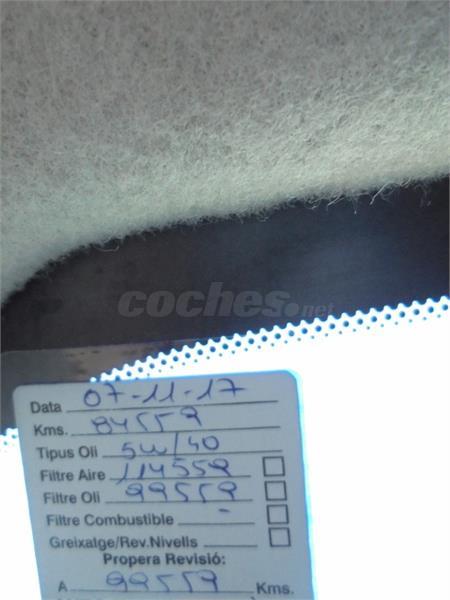 coches.net
Data 07-11-17
Kms. 84559
Tipus Oli 5w/40
Filtre Aire 114559
Filtre Oli 99559
Filtre Combustible -
Greixatge/Rev.Nivells
Propera Revisió:
A 99559 Kms.